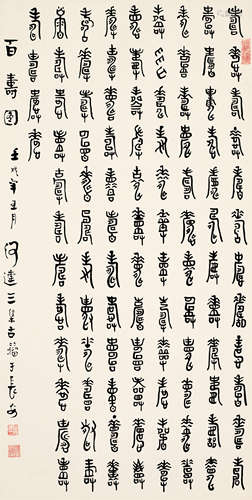 壽壽壽壽壽壽壽壽壽壽壽壽
壽壽壽壽壽壽壽壽壽壽壽壽
壽壽壽壽壽壽壽壽壽壽壽壽
壽壽壽壽壽壽壽壽壽壽壽壽
壽壽壽壽壽壽壽壽壽壽壽壽
壽壽壽壽壽壽壽壽壽壽壽壽
壽壽壽壽壽壽壽壽壽壽壽壽
壽壽壽壽壽壽壽壽壽壽壽壽
壽壽壽壽
百壽圖 壬戌年五月 何達三集古籀于長安